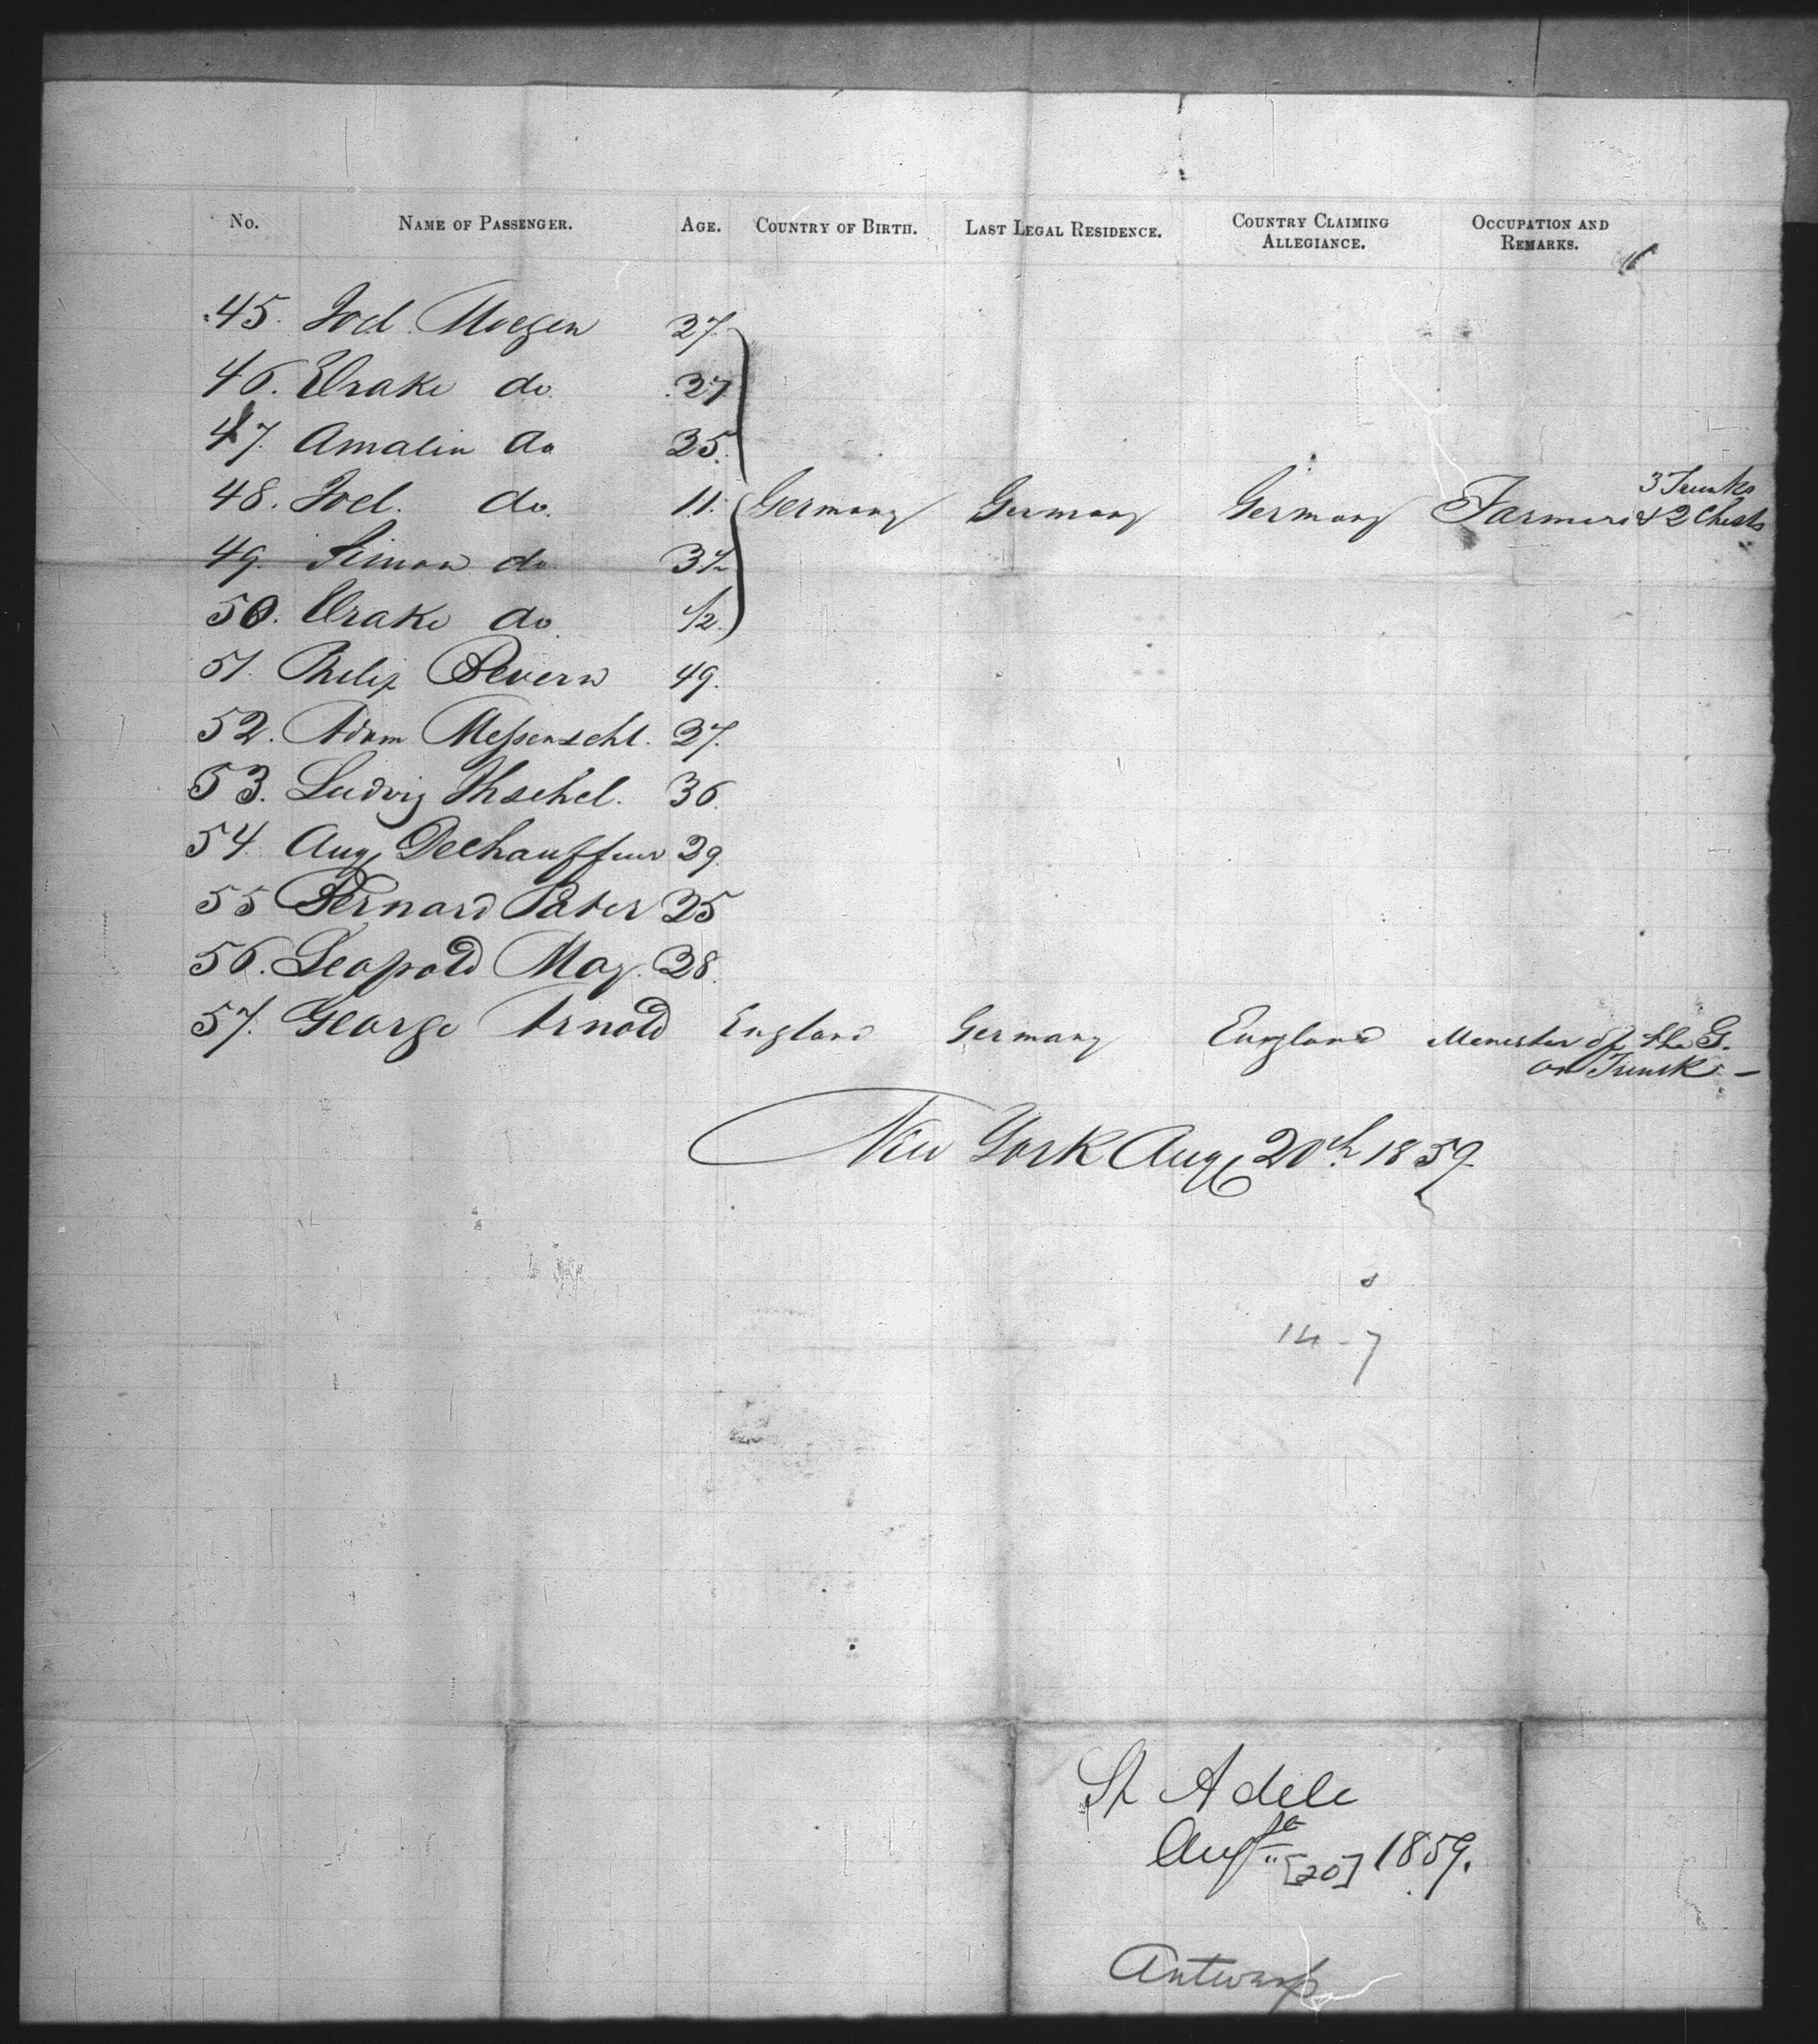 No. NAME OF PASSENGER. AGE. COUNTRY OF BIRTH. LAST LEGAL RESIDENCE. COUNTRY CLAIMING ALLEGIANCE. OCCUPATION AND REMARKS.
45. Joel 27.
46. do. 27
47. Amalia do 25.
48. Joel. do. 11. Germany Germany Germany Farmers 3 Trunks & 2 Chests
49. Simon do.
50. do. 1/2.
51. Philip Bevern 49.
52. Adam 27.
53. Ludvig 36.
54. Aug, Dechauffeur 29.
55 Bernard Pater 25
56. Leopold May. 28.
57. George Arnold England Germany England Menester of the G.
on Trunk -
New York Aug, 20th. 1859.
14-7
Sp Adele
Augt [20] 1859.
Antwerp